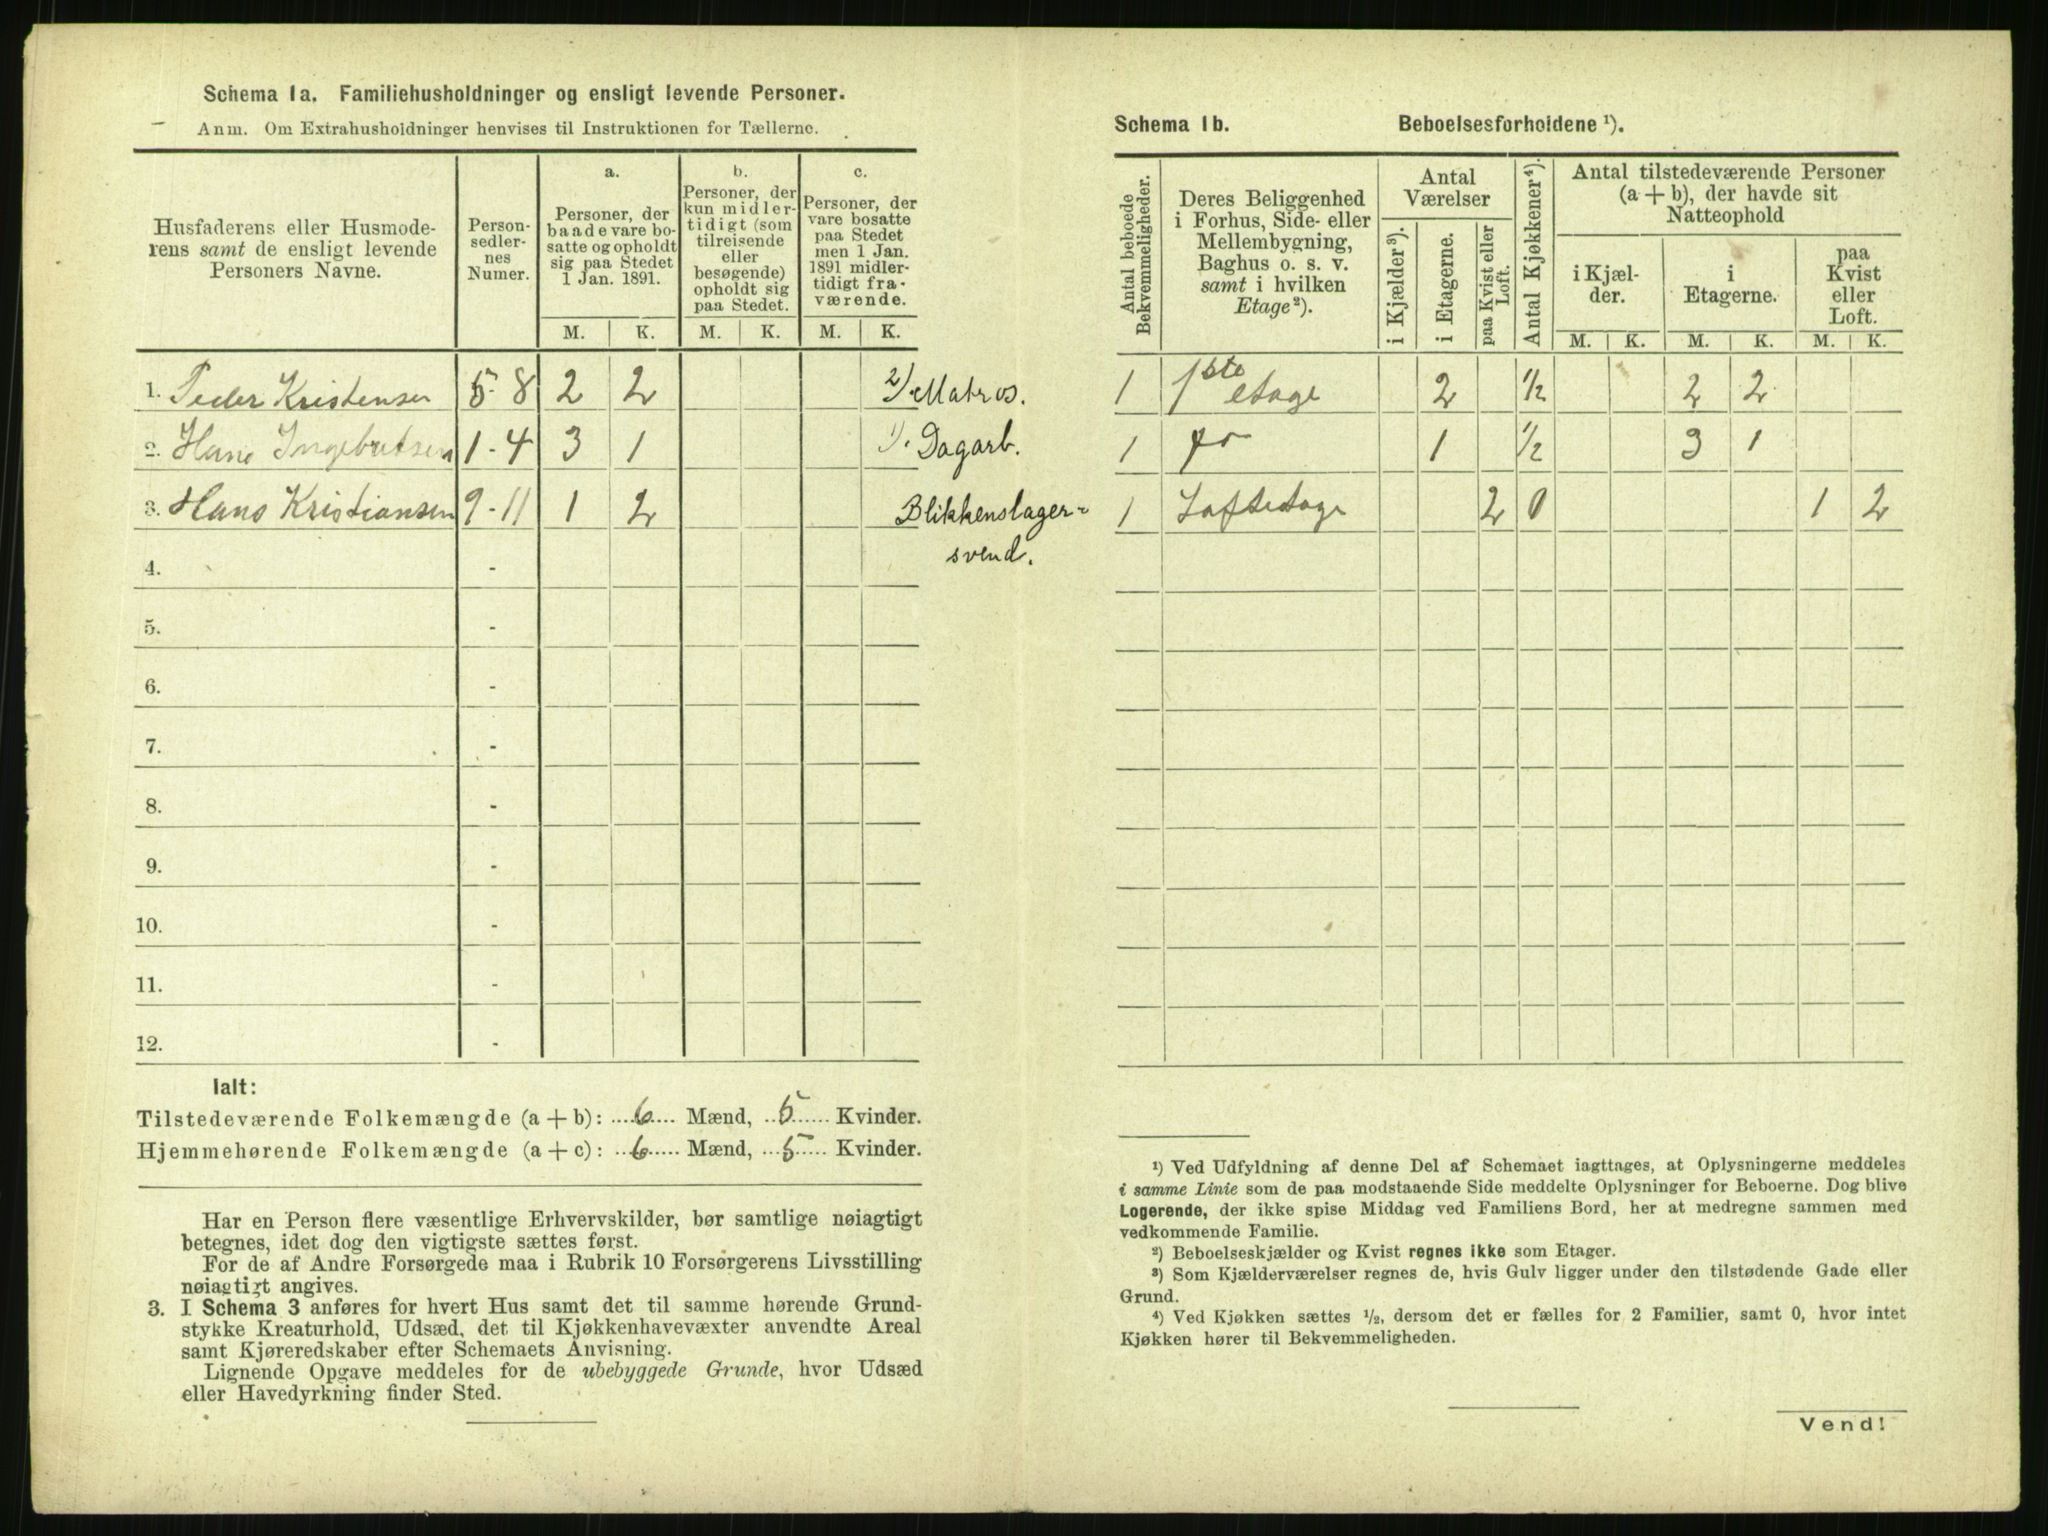 Schema 1a. Familiehusholdninger og ensligt levende Personer.
Anm. Om Extrahusholdninger henvises til Instruktionen for Tællerne.
Husfaderens eller Husmode-
rens samt de ensligt levende
Personers Navne.
Person-
sedler-
nes
Numer.
a.
Personer, der
baade vare bo-
satte og opholdt
sig paa Stedet
1 Jan. 1891.
b.
Personer, der
kun midler-
tidigt (som
tilreisende
eller
besøgende)
opholdt sig
paa Stedet.
c.
Personer, der
vare bosatte
paa Stedet
men 1 Jan.
1891 midler-
tidigt fra-
værende.
M. K. M. K. M. K.
1. Peder Kristensen 5-8 2 2 2/ Matros.
2. Hans Ingebretsen 1-4 3 1 1/. Dagarb.
3. Hans Kristiansen 9-11 1 2 Blikkenslager-
svend.
4. -
5. -
6. -
7. -
8. -
9. -
10. -
11. -
12. -
Ialt:
Tilstedeværende Folkemængde (a+b): 6 Mænd, 5 Kvinder.
Hjemmehørende Folkemængde (a+c): 6 Mænd, 5 Kvinder.
Har en Person flere væsentlige Erhvervskilder, bør samtlige nøiagtigt
betegnes, idet dog den vigtigste sættes først.
For de af Andre Forsørgede maa i Rubrik 10 Forsørgerens Livsstilling
nøiagtigt angives.
3. I Schema 3 anføres for hvert Hus samt det til samme hørende Grund-
stykke Kreaturhold, Udsæd, det til Kjøkkenhavevæxter anvendte Areal
samt Kjøreredskaber efter Schemaets Anvisning.
Lignende Opgave meddeles for de ubebyggede Grunde, hvor Udsæd
eller Havedyrkning finder Sted.
Schema 1b. Beboelsesforholdene ¹).
Antal beboede
Bekvemmeligheder.
Deres Beliggenhed
i Forhus, Side- eller
Mellembygning,
Baghus o. s. v.
samt i hvilken
Etage²).
Antal
Værelser
i Kjælder³).
i Etagerne.
paa Kvist eller
Loft.
Antal Kjøkkener⁴).
Antal tilstedeværende Personer
(a+b), der havde sit
Natteophold
i Kjæl-
der.
i
Etagerne.
paa
Kvist
eller
Loft.
M. K. M. K. M. K.
1 1ste etage 2 1/2 2 2
1 do 1 1/2 3 1
1 Loftetage 2 0 1 2
¹) Ved Udfyldning af denne Del af Schemaet iagttages, at Oplysningerne meddeles
i samme Linie som de paa modstaaende Side meddelte Oplysninger for Beboerne. Dog blive
Logerende, der ikke spise Middag ved Familiens Bord, her at medregne sammen med
vedkommende Familie.
²) Beboelseskjælder og Kvist regnes ikke som Etager.
³) Som Kjælderværelser regnes de, hvis Gulv ligger under den tilstødende Gade eller
Grund.
⁴) Ved Kjøkken sættes ½, dersom det er fælles for 2 Familier, samt 0, hvor intet
Kjøkken hører til Bekvemmeligheden.
Vend!